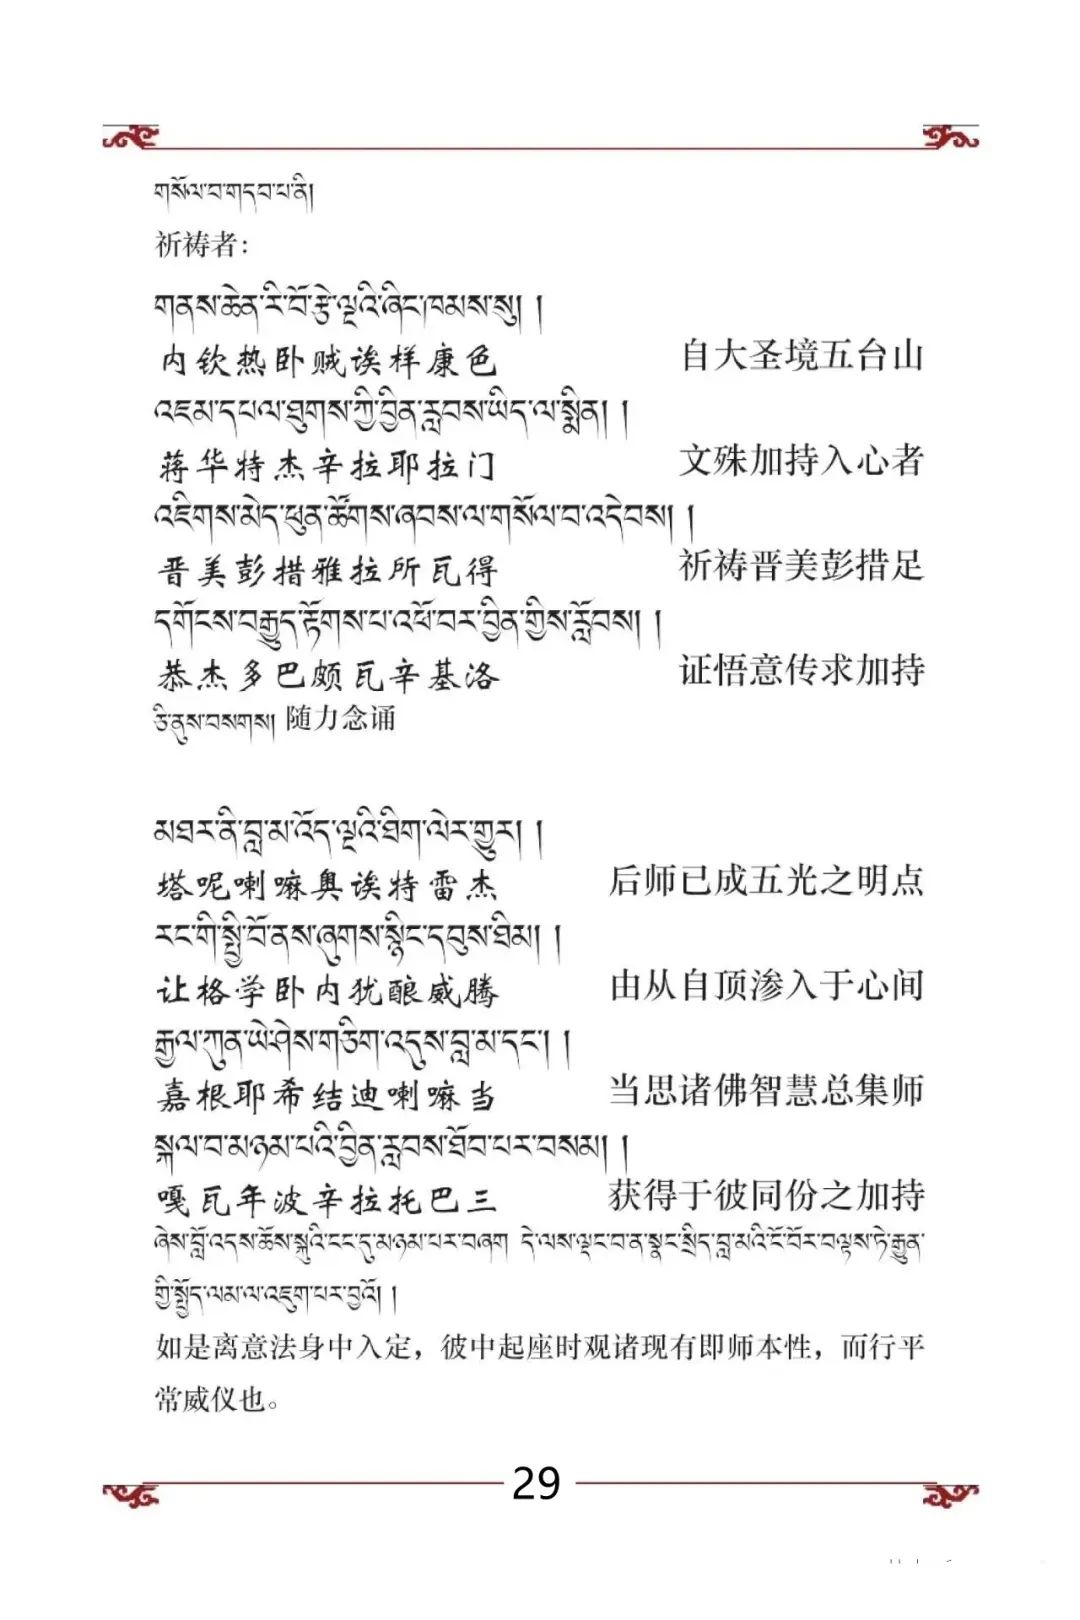 གསོལ་བ་གདབ་པ་ནི།
祈祷者：
གནས་ཆེན་རི་བོ་རྩེ་ལྔའི་ཞིང་ཁམས་སུ། །
内钦热卧贼诶样康色 自大圣境五台山
འཇམ་དཔལ་ཐུགས་ཀྱི་བྱིན་རླབས་ཡིད་ལ་སྨིན། །
蒋华特杰辛拉耶拉门 文殊加持入心者
འཇིགས་མེད་ཕུན་ཚོགས་ཞབས་ལ་གསོལ་བ་འདེབས། །
晋美彭措雅拉所瓦得 祈祷晋美彭措足
དགོངས་བརྒྱུད་རྟོགས་པ་འཕོ་བར་བྱིན་གྱིས་རློབས། །
恭杰多巴颇瓦辛基洛 证悟意传求加持
ཅི་ནུས་བསགས། 随力念诵
མཐར་ནི་བླ་མ་འོད་ལྔའི་ཐིག་ལེར་གྱུར། །
塔呢喇嘛奥诶特雷杰 后师已成五光之明点
རང་གི་སྤྱི་བོ་ནས་ཞུགས་སྙིང་དབུས་ཐིམ། །
让格学卧内犹酿威腾 由从自顶渗入于心间
རྒྱལ་ཀུན་ཡེ་ཤེས་གཅིག་འདུས་བླ་མ་དང་། །
嘉根耶希结迪喇嘛当 当思诸佛智慧总集师
སྐལ་བ་མཉམ་པའི་བྱིན་རླབས་ཐོབ་པར་བསམ། །
嘎瓦年波辛拉托巴三 获得于彼同份之加持
ཞེས་བློ་འདས་ཆོས་སྐུའི་ངང་དུ་མཉམ་པར་བཞག དེ་ལས་ལྡང་བ་ན་སྣང་སྲིད་བླ་མའི་ངོ་བོར་བལྟས་ཏེ་རྒྱུན་
གྱི་སྤྱོད་ལམ་ལ་འཇུག་པར་བྱའོ། །
如是离意法身中入定，彼中起座时观诸现有即师本性，而行平
常威仪也。
29